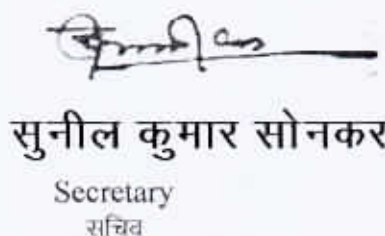 सुनील कुमार सोनकर
Secretary
सचिव